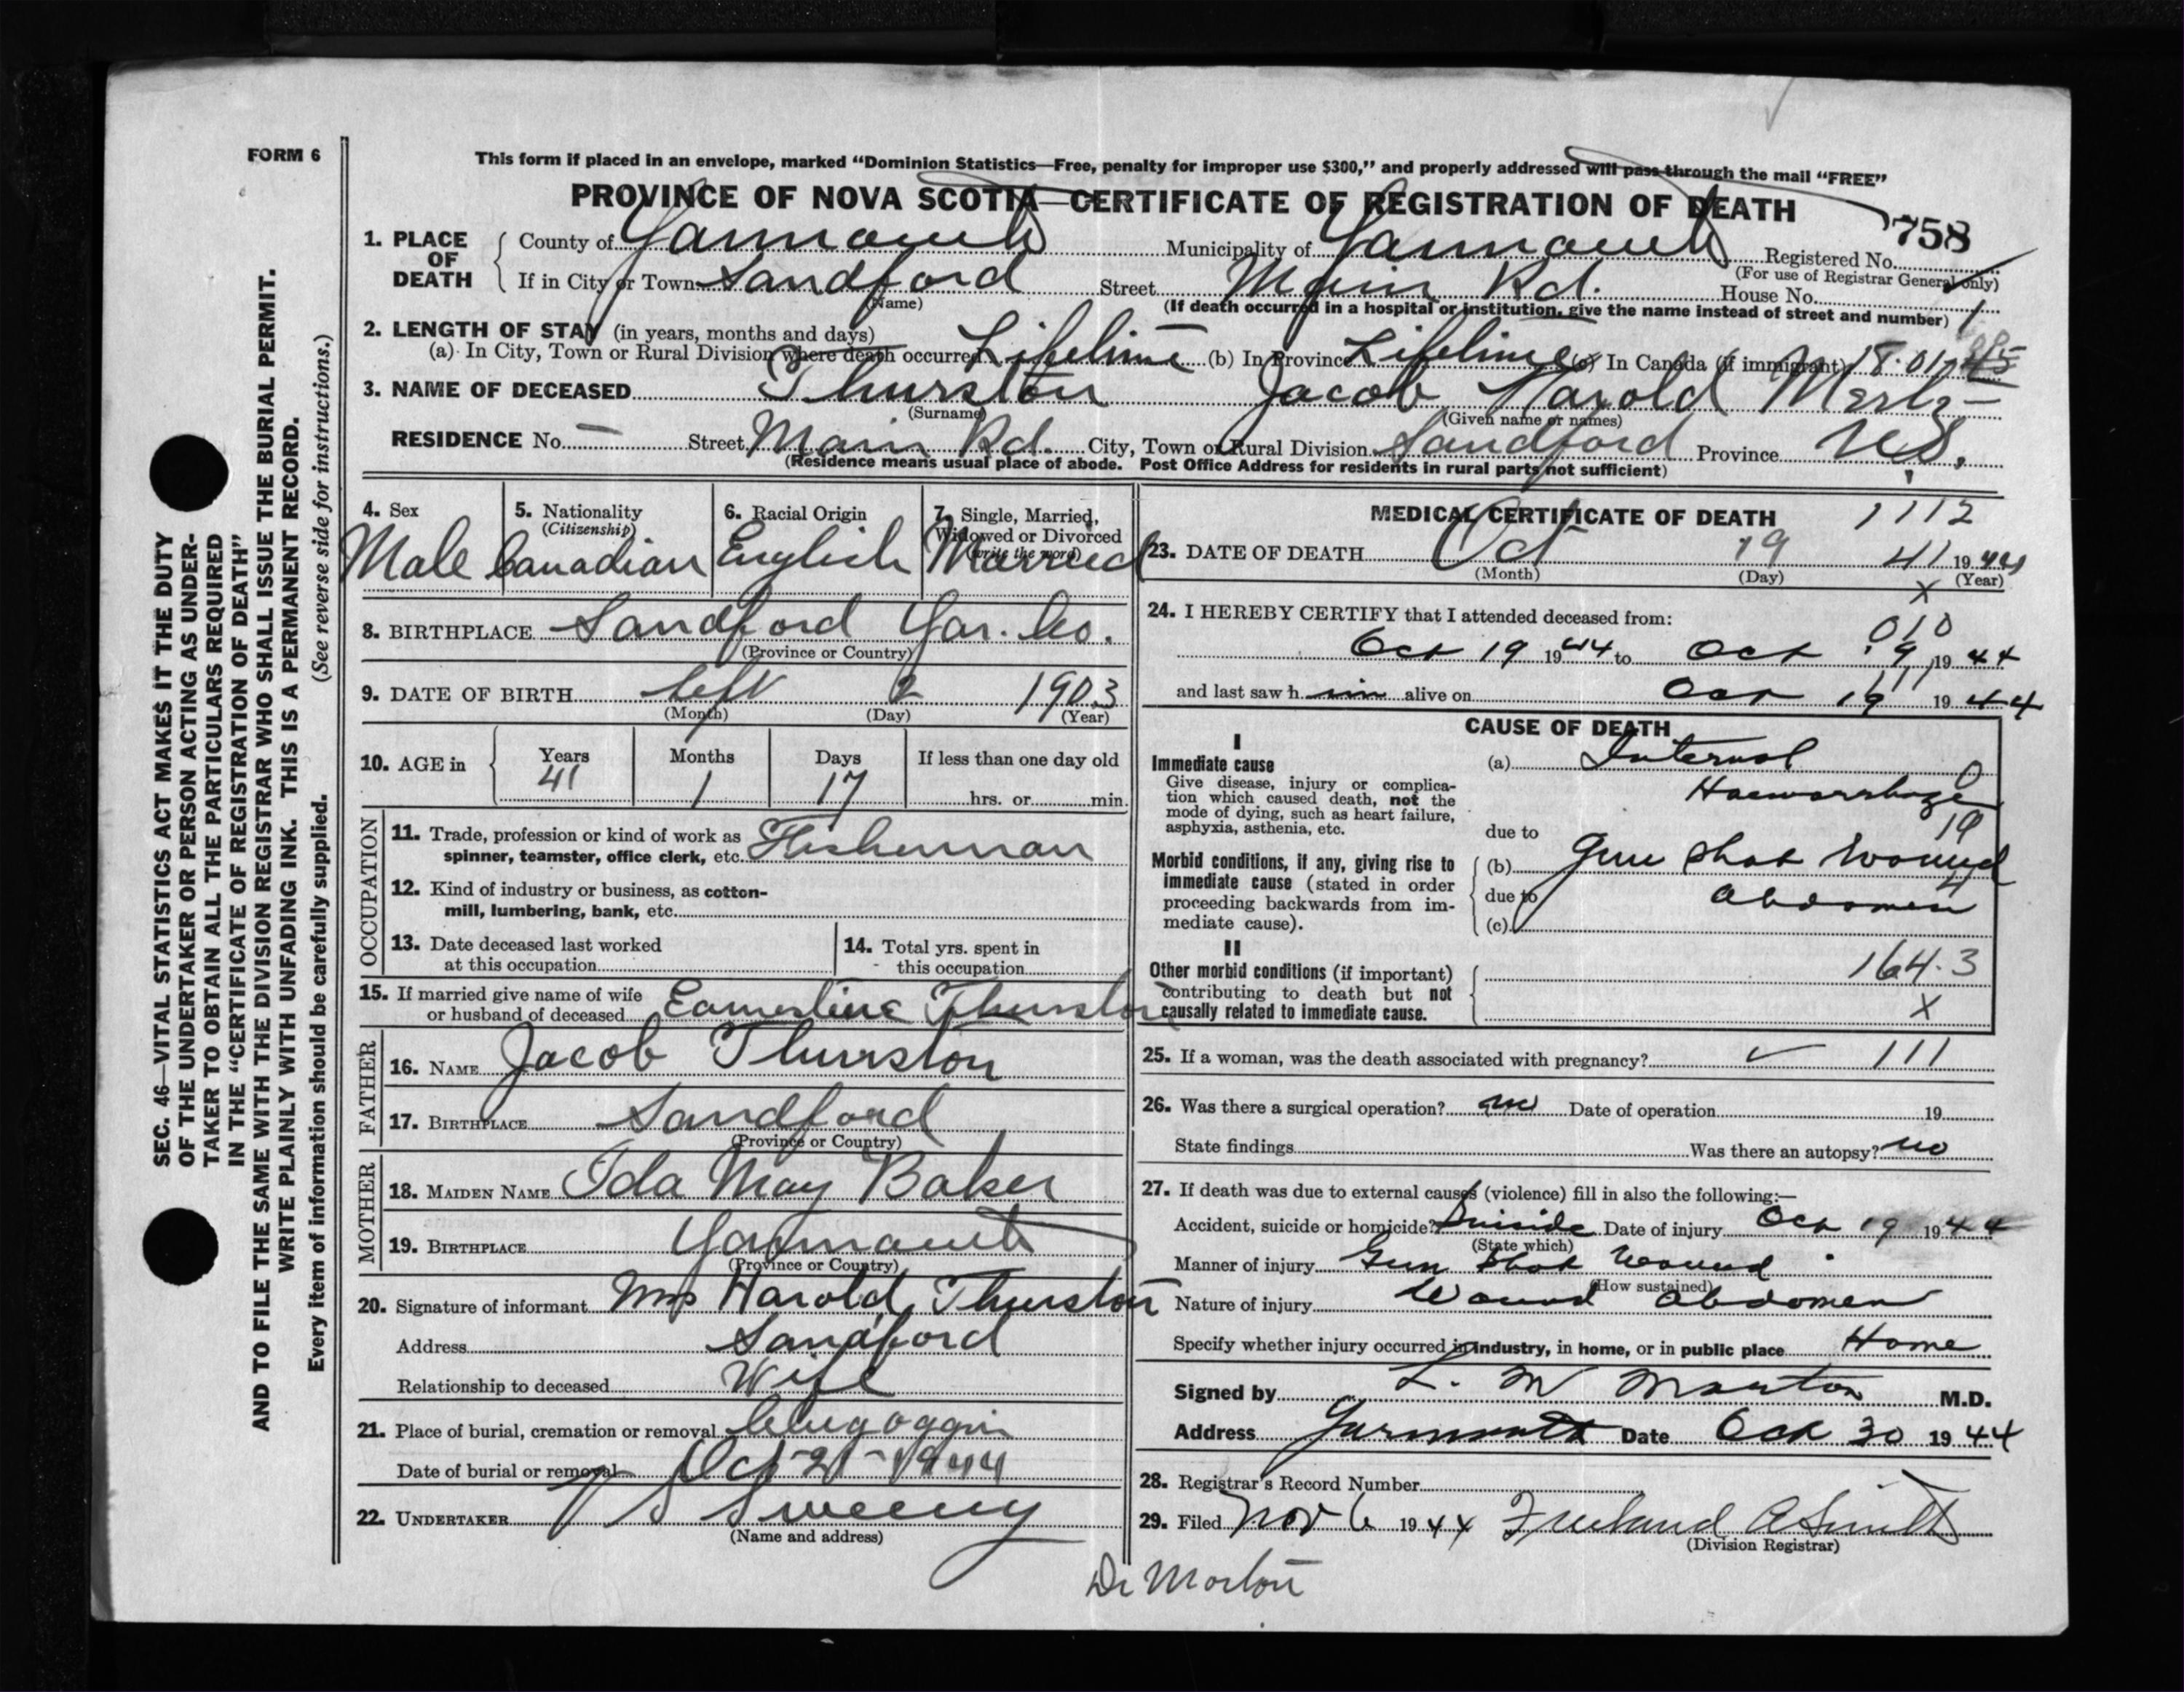 FORM 6
This form if placed in an envelope, marked “Dominion Statistics—Free, penalty for improper use $300,” and properly addressed will pass through the mail “FREE”
PROVINCE OF NOVA SCOTIA—CERTIFICATE OF REGISTRATION OF DEATH
758
1. PLACE OF DEATH County of Yarmouth Municipality of Yarmouth Registered No.
(For use of Registrar General only)
If in City or Town Sandford Street Main Rd. House No.
(Name)
(If death occurred in a hospital or institution, give the name instead of street and number) 1
2. LENGTH OF STAY (in years, months and days)
(a) In City, Town or Rural Division where death occurred Lifetime (b) In Province Lifetime (c) In Canada (if immigrant) 18.01
3. NAME OF DECEASED Thurston Jacob Harold
(Surname) (Given name or names)
RESIDENCE No. — Street Main Rd. City, Town or Rural Division Sandford Province N.S.
(Residence means usual place of abode. Post Office Address for residents in rural parts not sufficient)
4. Sex Male
5. Nationality (Citizenship) Canadian
6. Racial Origin English
7. Single, Married, Widowed or Divorced (write the word) Married
8. BIRTHPLACE Sandford Yar. Co.
(Province or Country)
9. DATE OF BIRTH Sept 2 1903
(Month) (Day) (Year)
10. AGE in Years 41 Months 1 Days 17 If less than one day old
hrs. or min.
OCCUPATION
11. Trade, profession or kind of work as spinner, teamster, office clerk, etc. Fisherman
12. Kind of industry or business, as cotton-
mill, lumbering, bank, etc.
13. Date deceased last worked
at this occupation
14. Total yrs. spent in
this occupation
15. If married give name of wife
or husband of deceased Earnestine Thurston
FATHER
16. NAME Jacob Thurston
17. BIRTHPLACE Sandford
(Province or Country)
MOTHER
18. MAIDEN NAME Ida May Baker
19. BIRTHPLACE Yarmouth
(Province or Country)
20. Signature of informant Mrs Harold Thurston
Address Sandford
Relationship to deceased Wife
21. Place of burial, cremation or removal Chegoggin
Date of burial or removal Oct 21 - 1944
22. UNDERTAKER V S Sweeny
(Name and address)
MEDICAL CERTIFICATE OF DEATH 1112
23. DATE OF DEATH Oct 19 41 1944
(Month) (Day) (Year)
x
24. I HEREBY CERTIFY that I attended deceased from:
010
Oct 19 1944 to Oct 19 1944
111
and last saw h im alive on Oct 19 1944
CAUSE OF DEATH
I
Immediate cause
Give disease, injury or complica-
tion which caused death, not the
mode of dying, such as heart failure,
asphyxia, asthenia, etc.
(a) Internal 0
Haemorrhage
19
due to
Morbid conditions, if any, giving rise to
immediate cause (stated in order
proceeding backwards from im-
mediate cause).
(b) Gun shot Wound
4
due to Abdomen
(c)
II
Other morbid conditions (if important)
contributing to death but not
causally related to immediate cause.
164.3
X
25. If a woman, was the death associated with pregnancy? 111
26. Was there a surgical operation? no Date of operation 19
State findings Was there an autopsy? no
27. If death was due to external causes (violence) fill in also the following:—
Accident, suicide or homicide? Suicide Date of injury Oct 19 1944
(State which)
Manner of injury Gun Shot Wound
(How sustained)
Nature of injury Wound Abdomen
Specify whether injury occurred in industry, in home, or in public place Home
Signed by L. M Morton M.D.
Address Yarmouth Date Oct 30 1944
28. Registrar's Record Number
29. Filed Nov 6 1944 Freeland A Smith
(Division Registrar)
Dr Morton
SEC. 46—VITAL STATISTICS ACT MAKES IT THE DUTY
OF THE UNDERTAKER OR PERSON ACTING AS UNDER-
TAKER TO OBTAIN ALL THE PARTICULARS REQUIRED
IN THE “CERTIFICATE OF REGISTRATION OF DEATH”
AND TO FILE THE SAME WITH THE DIVISION REGISTRAR WHO SHALL ISSUE THE BURIAL PERMIT.
WRITE PLAINLY WITH UNFADING INK. THIS IS A PERMANENT RECORD.
Every item of information should be carefully supplied. (See reverse side for instructions.)